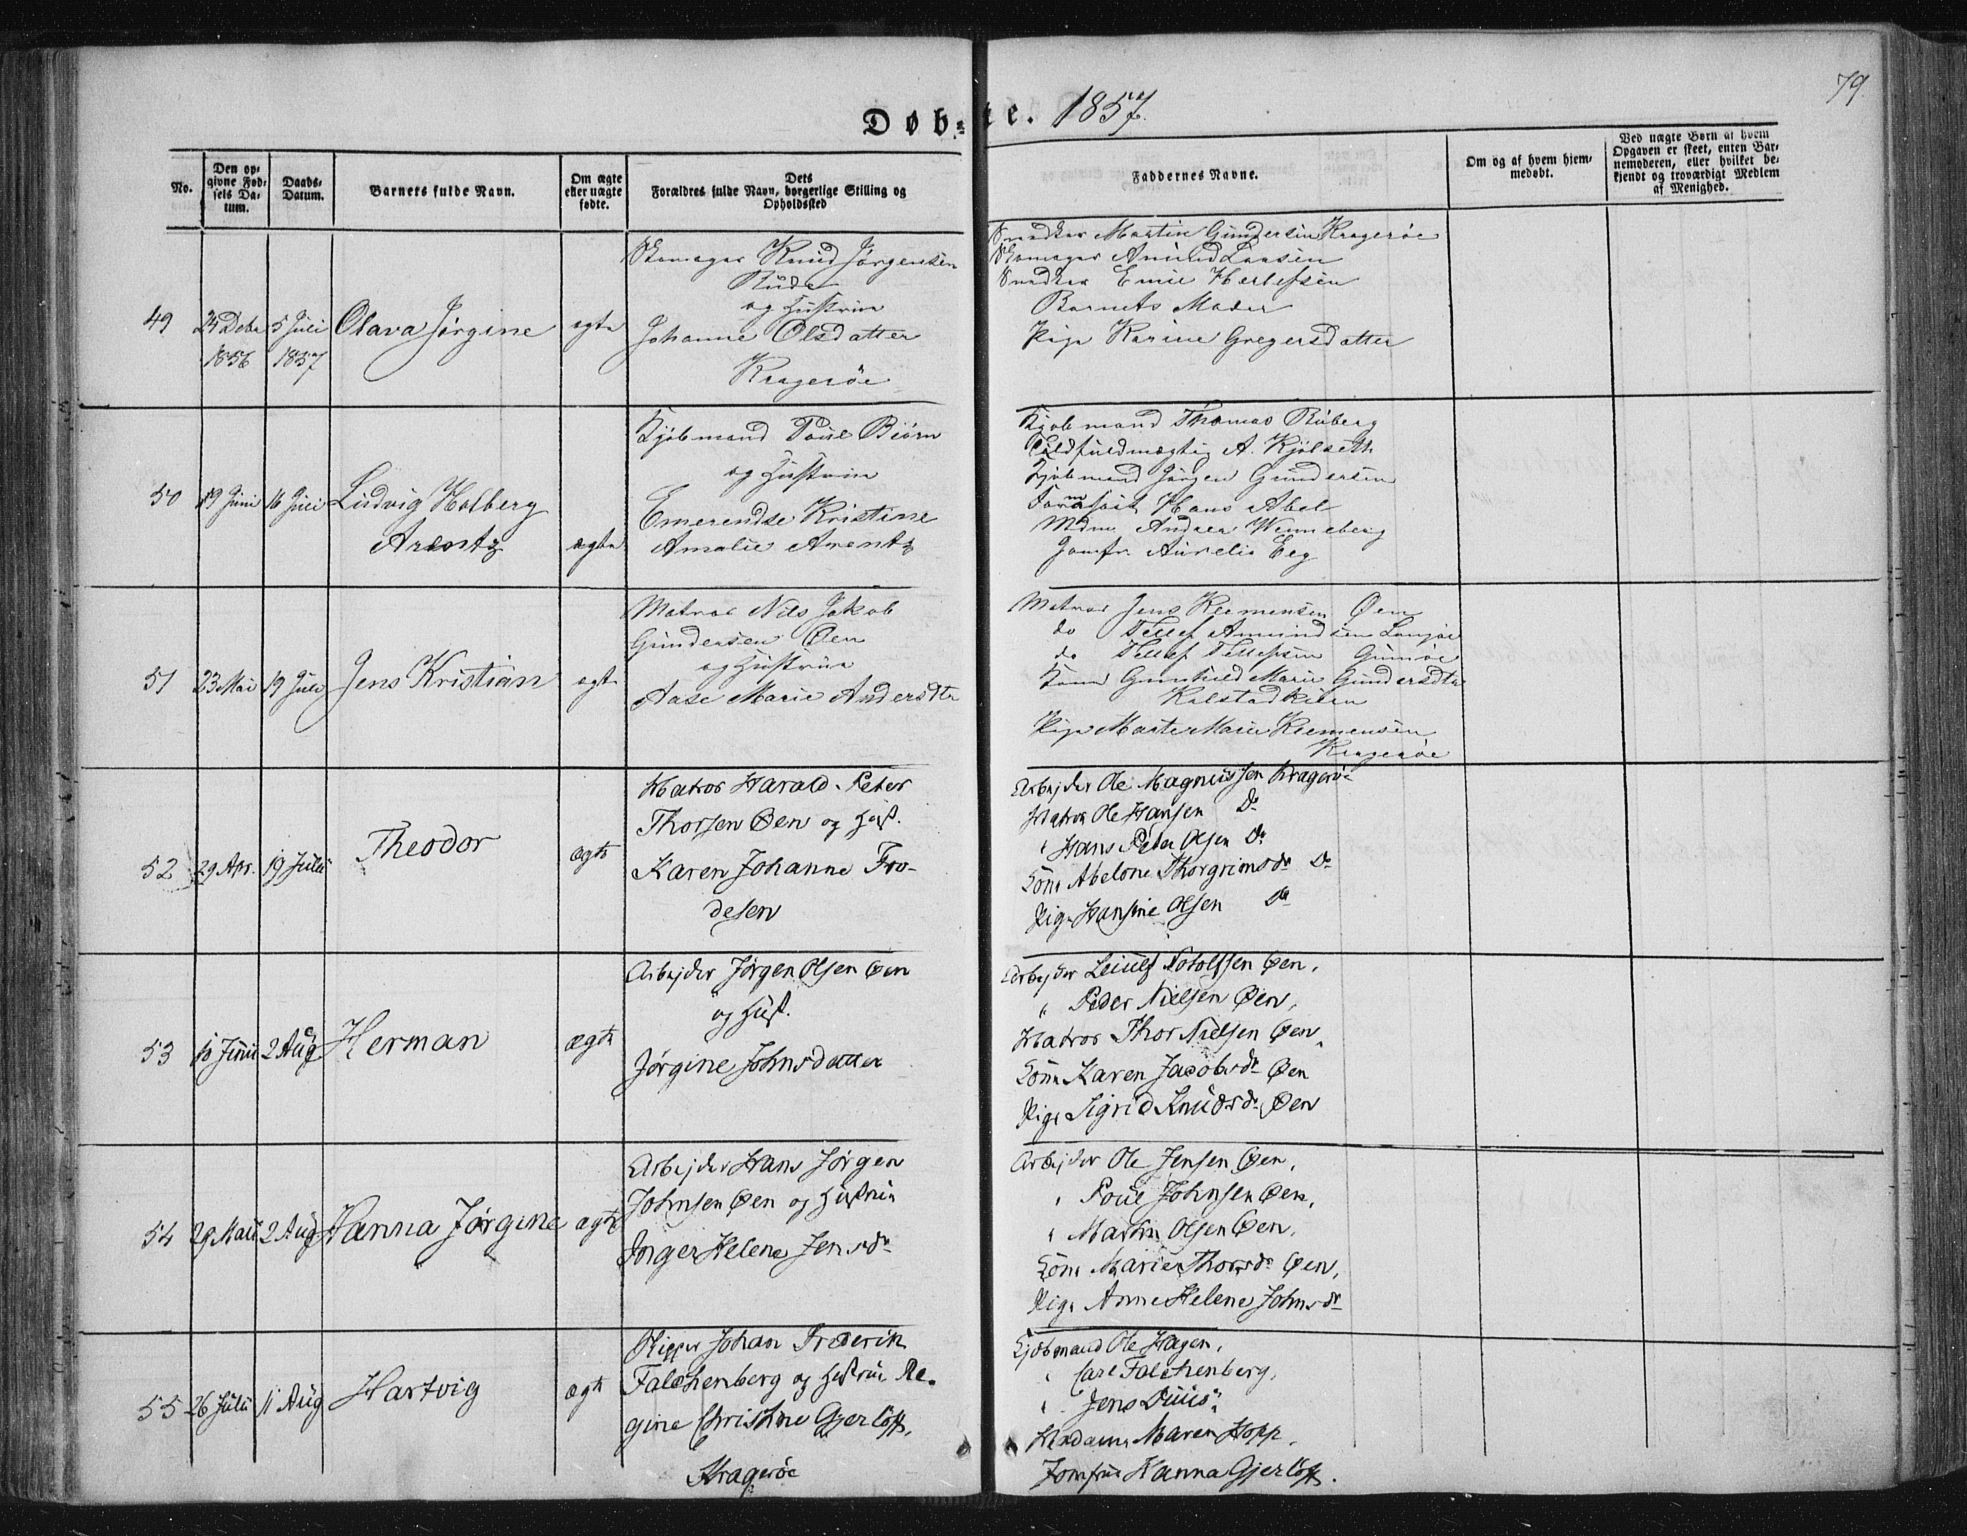 79
Døbte. 1857.
No.
Den opgivne Fødsels Datum.
Daabs-Datum.
Barnets fulde Navn.
Om ægte eller uægte fødte.
Dets Forældres fulde Navn, borgerlige Stilling og Opholdssted
Faddernes Navne.
Om og af hvem hjemmedøbt.
Ved uægte Børn af hvem Opgaven er skeet, enten Barnemoderen, eller hvilket bekjendt og troværdigt Medlem af Menighed.
49
24 Debr 1856
5 Juli 1857
Olava Jørgine
ægte
Skomager Knud Jørgensen
Rude
og Hustrue
Johanne Olsdatter
Kragerøe
Snedker Martin Gundersen Kragerøe
Skomager Amund Larsen
Snedker Emil Herlefsen
Barnets Moder
Pige Karine Gregersdatter
50
19 Juni
16 Juli
Ludvig Holberg
Arentz
ægte
Kjøbmand Poul Biørn
og Hustrue
Emerendse Kristine
Amalie Arentz
Kjøbmand Thomas Biiberg
Toldfuldmægtig A. Kjølseth
Kjøbmand Jørgen Gundersen
Hans Abel
Mdme Andrea Wenneberg
Jomfr Aurelia Eeg
51
23 Mai
19 Juli
Jens Kristian
ægte
Matros Nils Jakob
Gundersen Øen
og Hustrue
Aase Marie Andersdtr
Matros Jens Klemensen Øen
do Tellef Amundsen Langøe
do Tellef Tellefsen Gumøe
Kone Gunhild Marie Gundersdtr
Kalstadkilen
Pige Marte Marie Klemensen
Kragerøe
52
29 Apr.
19 Julii
Theodor
ægte
Matros Harald Peter
Thorsen Øen og Hust.
Karen Johanne Fro-
desen
Arbejder Ole Magnussen Kragerøe
Matros Ole Hansen Do
" Hans Peter Olsen Do
Kone Abelone Thorgrimsdr Do
Pige Hansine Olsen Do
53
10 Junii
2 Aug
Herman
ægte
Arbejder Jørgen Olsen Øen
og Hust.
Jørgine Johnsdatter
Arbejder Leiulf Rolofssen Øen,
" Peder Nielsen Øen,
Matros Thor Nielsen Øen,
Kone Karen Jacobsdr Øen
Pige Sigrid Knudsdr Øen
54
29 Maii
2 Aug
Hanna Jørgine
ægte
Arbejder Hans Jørgen
Johnsen Øen og Hustrue
Inger Helene Jensdr
Arbejder Ole Jensen Øen,
" Poul Johnsen Øen,
" Martin Olsen Øen,
Kone Marie Thorsdr Øen,
Pige Anne Helene Johnsdr
55
26 Julii
11 Aug
Hartvig
ægte
Skipper Johan Frederik
Falchenberg og Hustrue Re-
gine Christine Gjerløff,
Kragerøe
Kjøbmand Ole Hagen,
" Carl Falchenberg,
" Jens Duus,
Madame Maren Hopp,
Jomfrue Hanna Gjerløff.